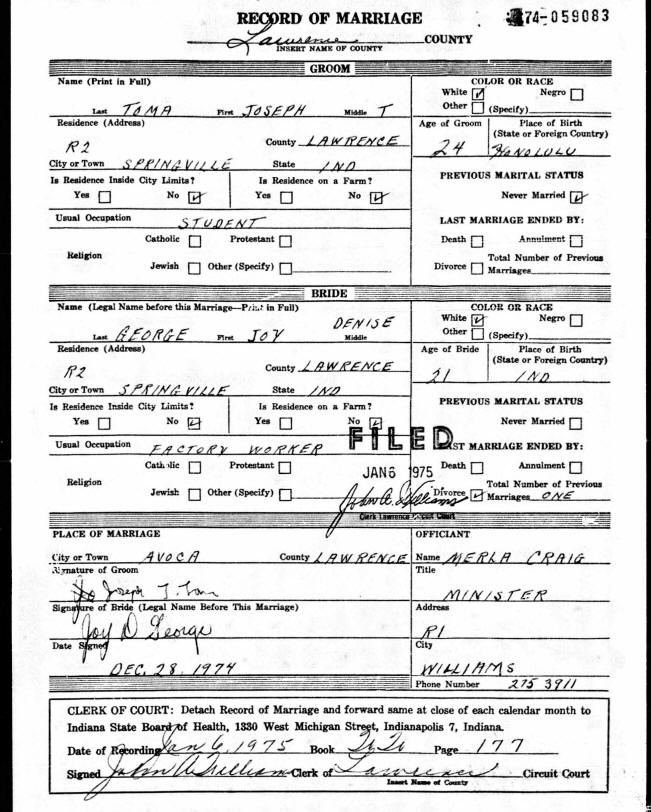 RECORD OF MARRIAGE
74-059083
Lawrence COUNTY
INSERT NAME OF COUNTY
GROOM
Name (Print in Full)
Last TOMA First JOSEPH Middle T
COLOR OR RACE
White ☑ Negro ☐
Other ☐ (Specify)
Residence (Address)
R2 County LAWRENCE
Age of Groom 24
Place of Birth (State or Foreign Country)
HONOLULU
City or Town SPRINGVILLE State IND
Is Residence Inside City Limits? Is Residence on a Farm?
Yes ☐ No ☑ Yes ☐ No ☑
PREVIOUS MARITAL STATUS
Never Married ☑
Usual Occupation STUDENT
LAST MARRIAGE ENDED BY:
Religion
Catholic ☐ Protestant ☐
Jewish ☐ Other (Specify) ☐
Death ☐ Annulment ☐
Divorce ☐ Total Number of Previous Marriages
BRIDE
Name (Legal Name before this Marriage—Print in Full)
DENISE
Last GEORGE First JOY Middle
COLOR OR RACE
White ☑ Negro ☐
Other ☐ (Specify)
Residence (Address)
R2 County LAWRENCE
Age of Bride 21
Place of Birth (State or Foreign Country)
IND
City or Town SPRINGVILLE State IND
Is Residence Inside City Limits? Is Residence on a Farm?
Yes ☐ No ☑ Yes ☐ No ☑
PREVIOUS MARITAL STATUS
Never Married ☐
Usual Occupation FACTORY WORKER
FILED
JAN 6 1975
John A. Williams
Clerk Lawrence Circuit Court
LAST MARRIAGE ENDED BY:
Religion
Catholic ☐ Protestant ☐
Jewish ☐ Other (Specify) ☐
Death ☐ Annulment ☐
Divorce ☑ Total Number of Previous Marriages ONE
PLACE OF MARRIAGE
City or Town AVOCA County LAWRENCE
Signature of Groom
Joseph T. Toma
Signature of Bride (Legal Name Before This Marriage)
Joy D George
Date Signed
DEC. 28, 1974
OFFICIANT
Name MERLA CRAIG
Title
MINISTER
Address
R1
City
WILLIAMS
Phone Number 275 3911
CLERK OF COURT: Detach Record of Marriage and forward same at close of each calendar month to
Indiana State Board of Health, 1330 West Michigan Street, Indianapolis 7, Indiana.
Date of Recording Jan 6, 1975 Book Page 177
Signed John A Williams Clerk of Lawrence Circuit Court
Insert Name of County